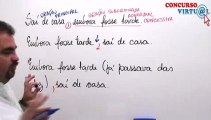 CONCURSO
VIRTUAL
ORAÇÃO PRINCIPAL ORAÇÃO SUBORDINADA ADVERBIAL CONCESSIVA
Saí de casa embora fosse tarde.
Embora fosse tarde, saí de casa.
Embora fosse tarde (já passava das
), saí de casa.